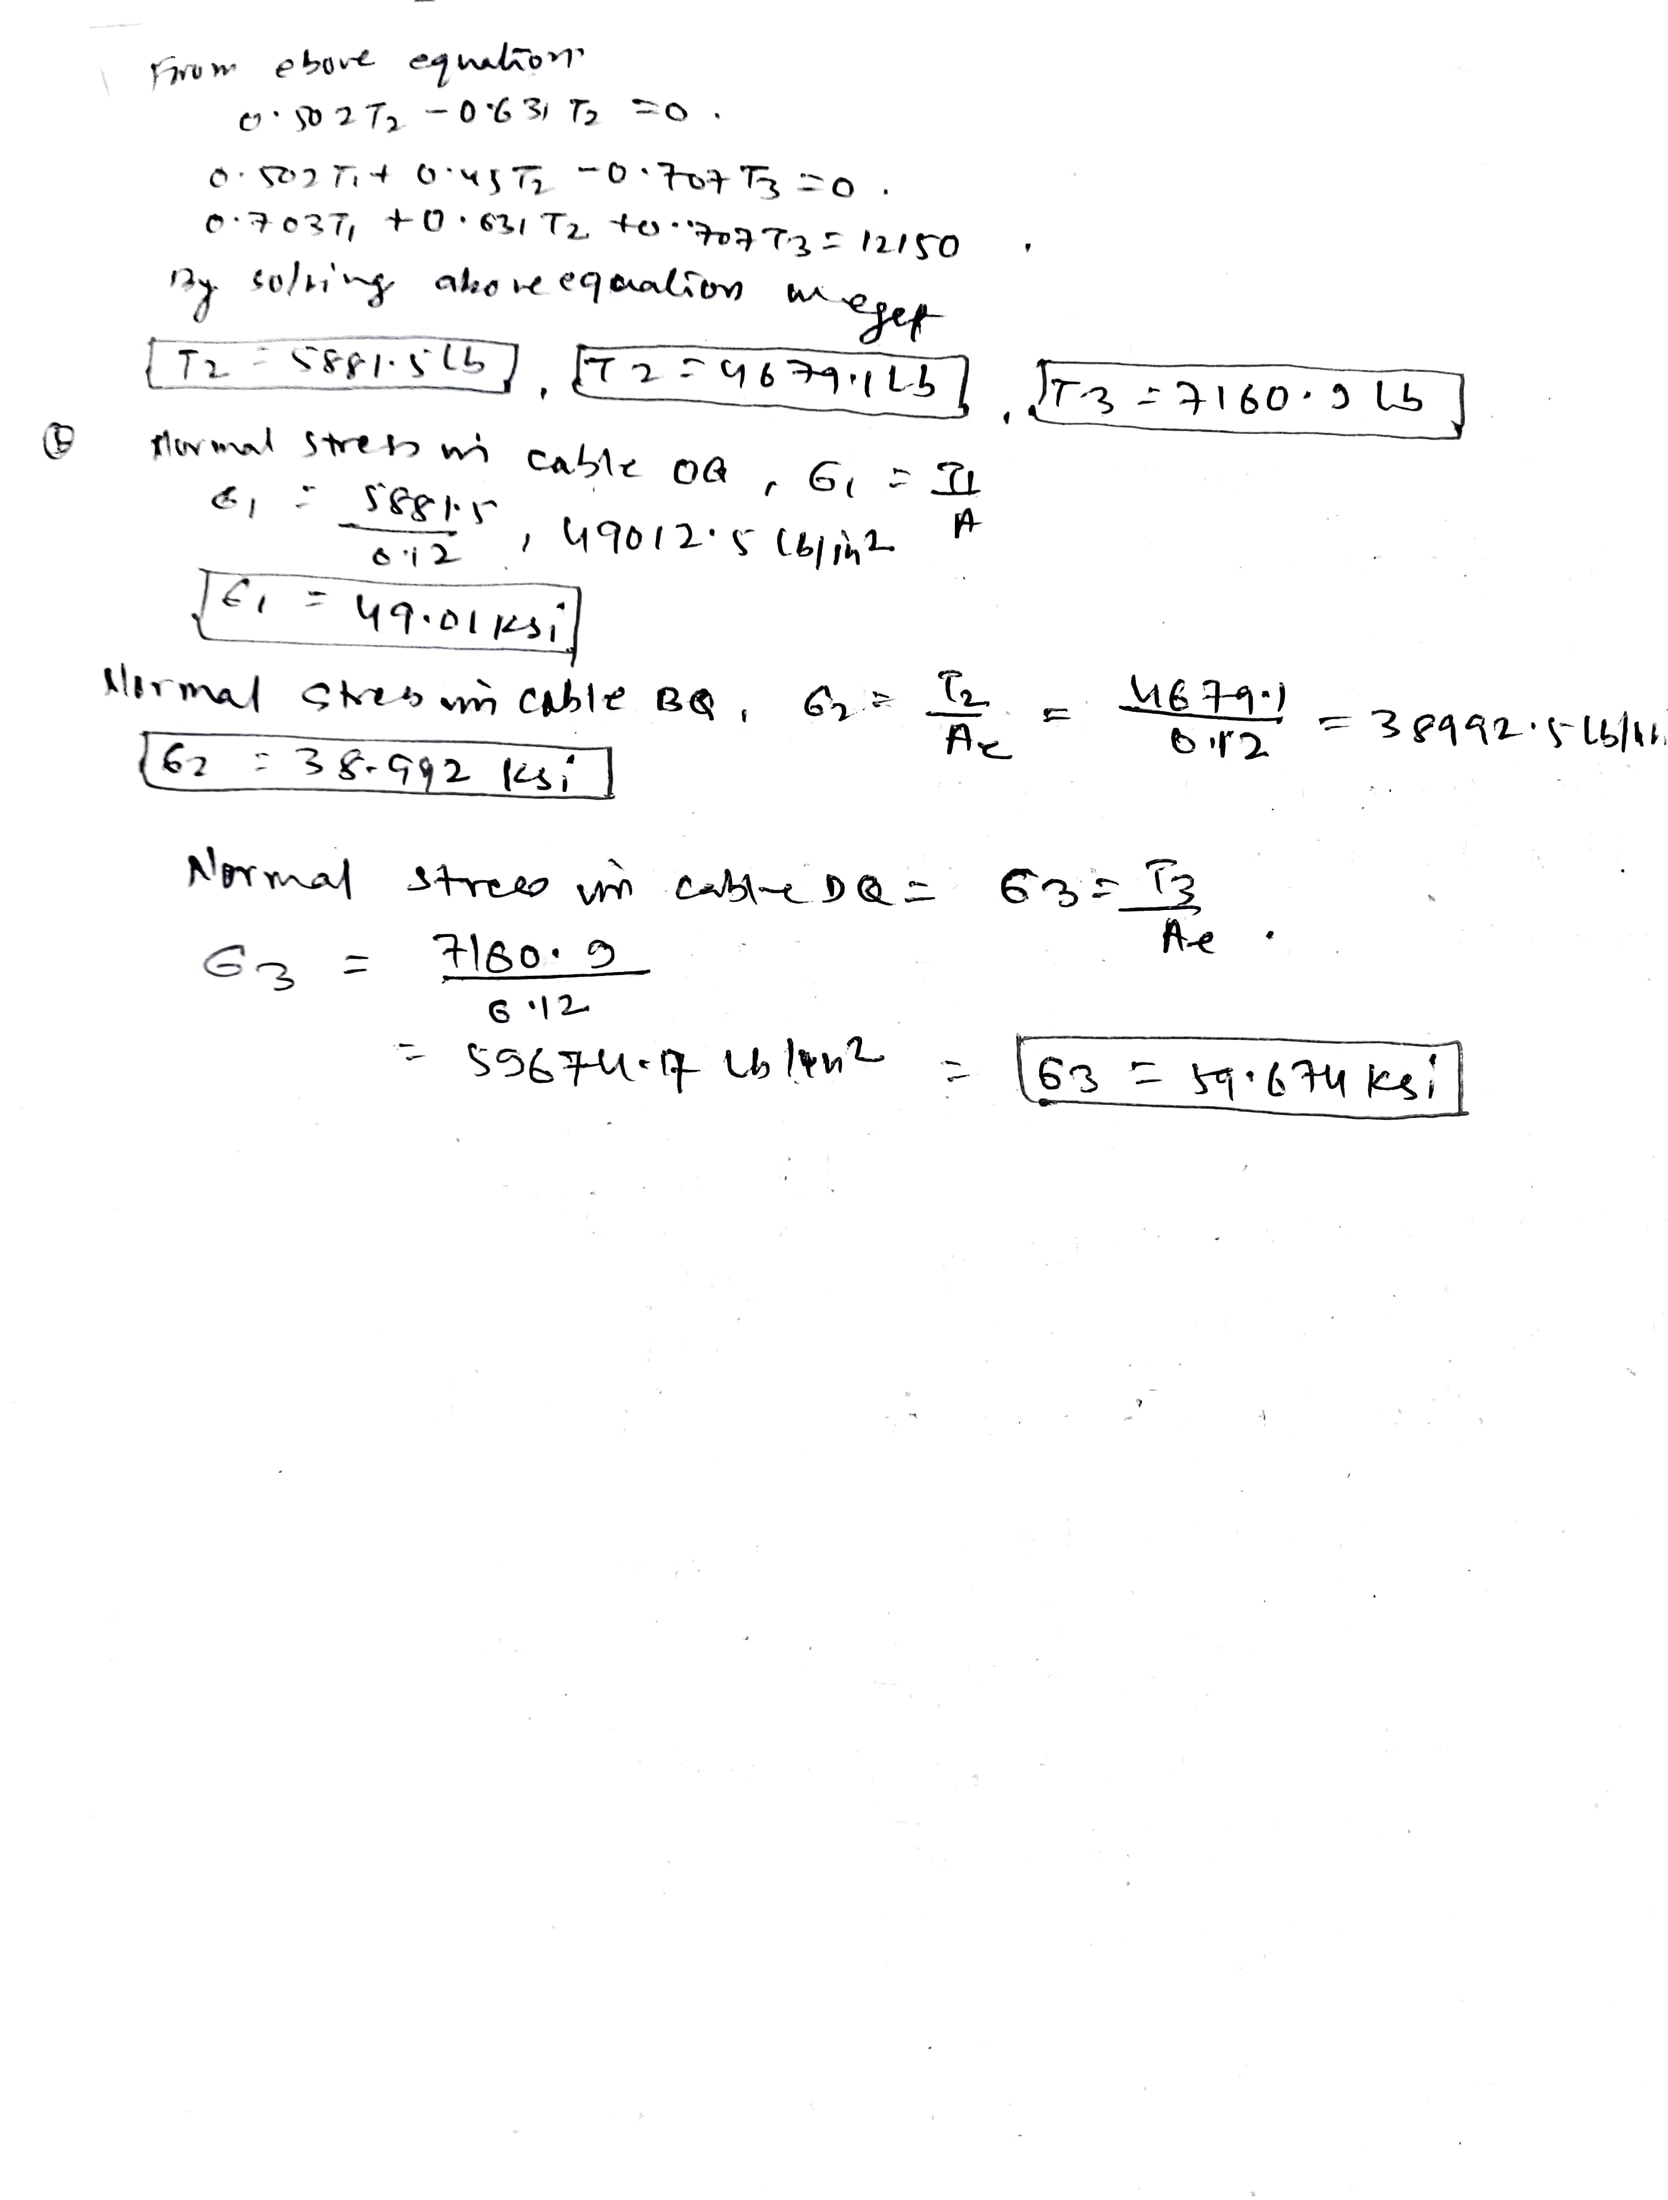 From above equation
0.502T2 - 0.631 T2 = 0.
0.502 T1 + 0.45 T2 - 0.707 T3 = 0.
0.703T1 + 0.631 T2 + 0.707 T3 = 12150.
By solving above equation we get
T2 = 5881.5 Lb, T2 = 4679.1 Lb, T3 = 7160.9 Lb
Normal stress in cable OQ, σ1 = T1/A
σ1 = 5881.5/0.12, 49012.5 Lb/in2
σ1 = 49.01 Ksi
Normal stress in cable BQ, σ2 = T2/Ae = 4679.1/0.12 = 38992.5 Lb/in
σ2 = 38.992 Ksi
Normal stress in cable DQ = σ3 = T3/Ae.
σ3 = 7160.9/0.12
= 59674.17 Lb/in2 = σ3 = 59.674 Ksi